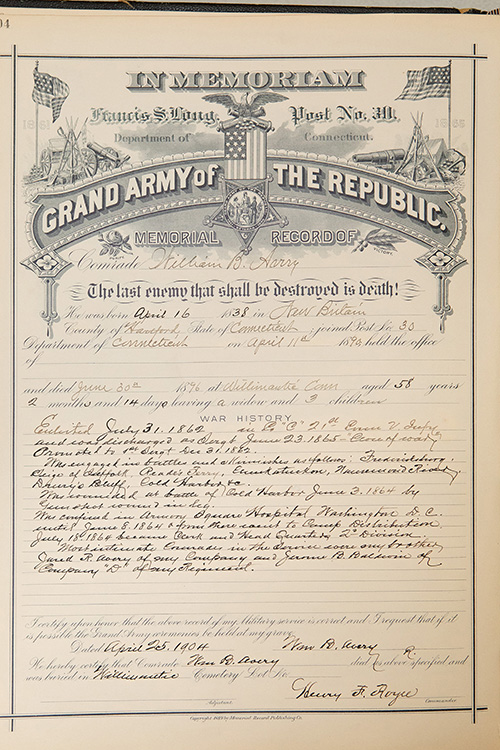 04
IN MEMORIAM
Francis S. Long, Post No. 30.
1861 1865
Department of Connecticut.
GRAND ARMY OF THE REPUBLIC.
MEMORIAL RECORD OF
VICTORY
Comrade William B. Avery
The last enemy that shall be destroyed is death!
He was born April 16 1838 in New Britain
County of State of Connecticut joined Post No. 30
Department of Connecticut on April 11th held the office
of
and died June 30th 1896 at Willimantic Conn aged 58 years
2 months and 14 days leaving a widow and 3 children
WAR HISTORY
Enlisted July 31. 1862 in Co "C" 21st Conn V. Infy
and was discharged as Sergt June 23. 1865 - Close of war
Promoted to 1st Sergt Dec 31. 1862.
Was engaged in battles and skirmishes as follows: Fredericksburg,
Siege of Suffolk, Ferry,
Drury's Bluff, Cold Harbor &c.
Was wounded at battle of Cold Harbor June 3. 1864 by
Gun shot wound in leg.
Was confined in Armory Square Hospital Washington D.C.
until June 8. 1864 & from there sent to Camp Distribution
July 18th 1864 became Clerk and Head Quarters, 2d Division,
Most intimate Comrades in the Service were my brother
Jared R. Avery of my Company and Jerome B. Baldwin of
Company "D" of my Regiment.
I certify upon honor that the above record of my Military service is correct and I request that if it
is possible the Grand Army ceremonies be held at my grave.
Dated April 25, 1904 Wm B. Avery
We hereby certify that Comrade Wm B. Avery died as above specified and
was buried in Willimantic Cemetery Lot No.
Henry F. Royce
Adjutant. Commander
Copyright 1883 by Memorial Record Publishing Co.